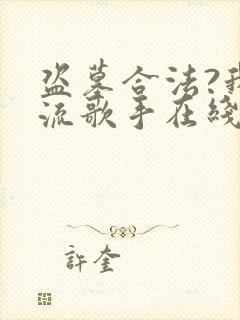 盗墓合法?我
流歌手在线
許奎